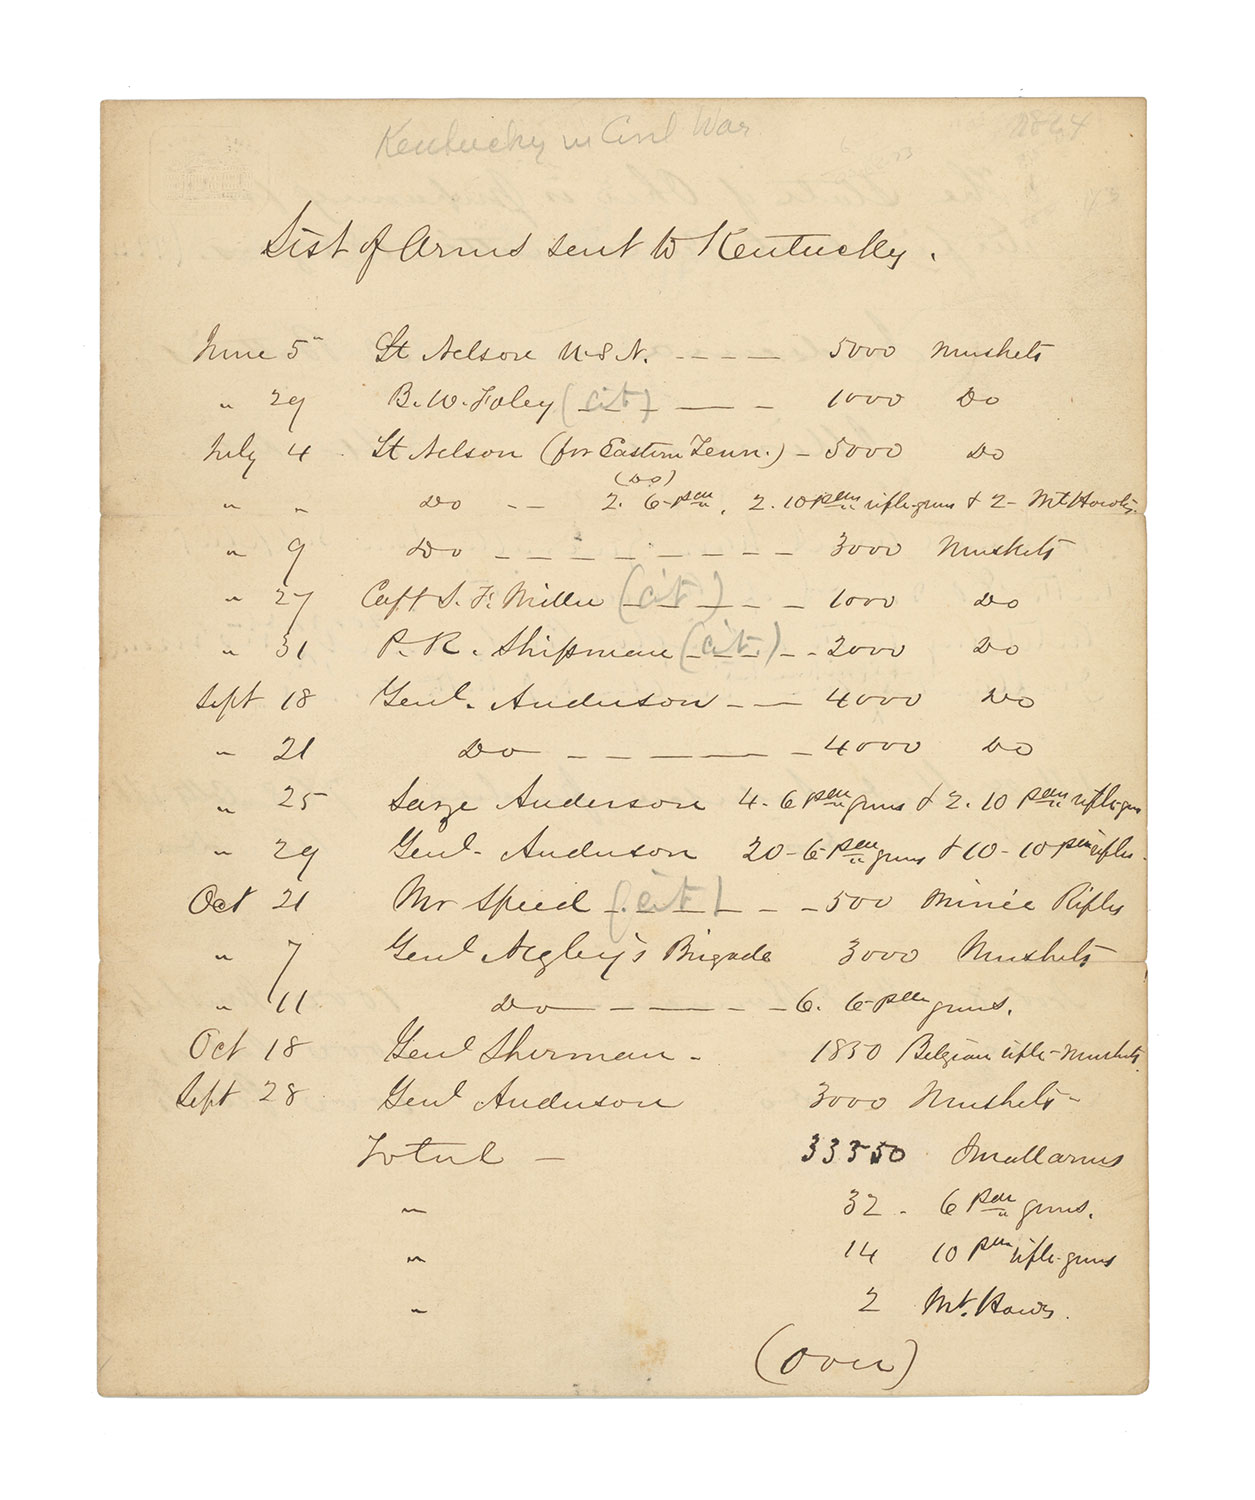 Kentucky in Civil War 1864
List of Arms sent to Kentucky.
June 5" Lt Nelson U.S.N. - - - - 5000 Muskets
" 29 B. W. Foley (cit) - - - 1000 Do
July 4 Lt Nelson (for Eastern Tenn.) - 5000 Do
(Do)
" " Do - - 2. 6-pdr, 2. 10 pdr rifle-guns & 2- Mt Howtz.
" 9 Do - - - - - - - 3000 Muskets
" 27 Capt S. F. Miller (cit) - - - 1000 Do
" 31 P. R. Shipman (cit.) - - - 2000 Do
Sept 18 Genl. Anderson - - - 4000 Do
" 21 Do - - - - - - 4000 Do
" 25 Larze Anderson 4. 6 pdr guns & 2. 10 pdr rifle-guns
" 29 Genl. Anderson 20-6-pdr guns & 10-10 pdr rifles.
Oct 21 Mr Speed (cit) - - - 500 Minié Rifles
" 7 Genl Negley's Brigade 3000 Muskets
" 11 Do - - - - - 6. 6-pdr guns.
Oct 18 Genl Sherman - 1850 Belgian rifle-muskets.
Sept 28 Genl Anderson 3000 Muskets -
Total - 33350 Small arms
" 32 - 6 pdr guns.
" 14 10 pdr rifle-guns
" 2 Mt. Hows.
(over)